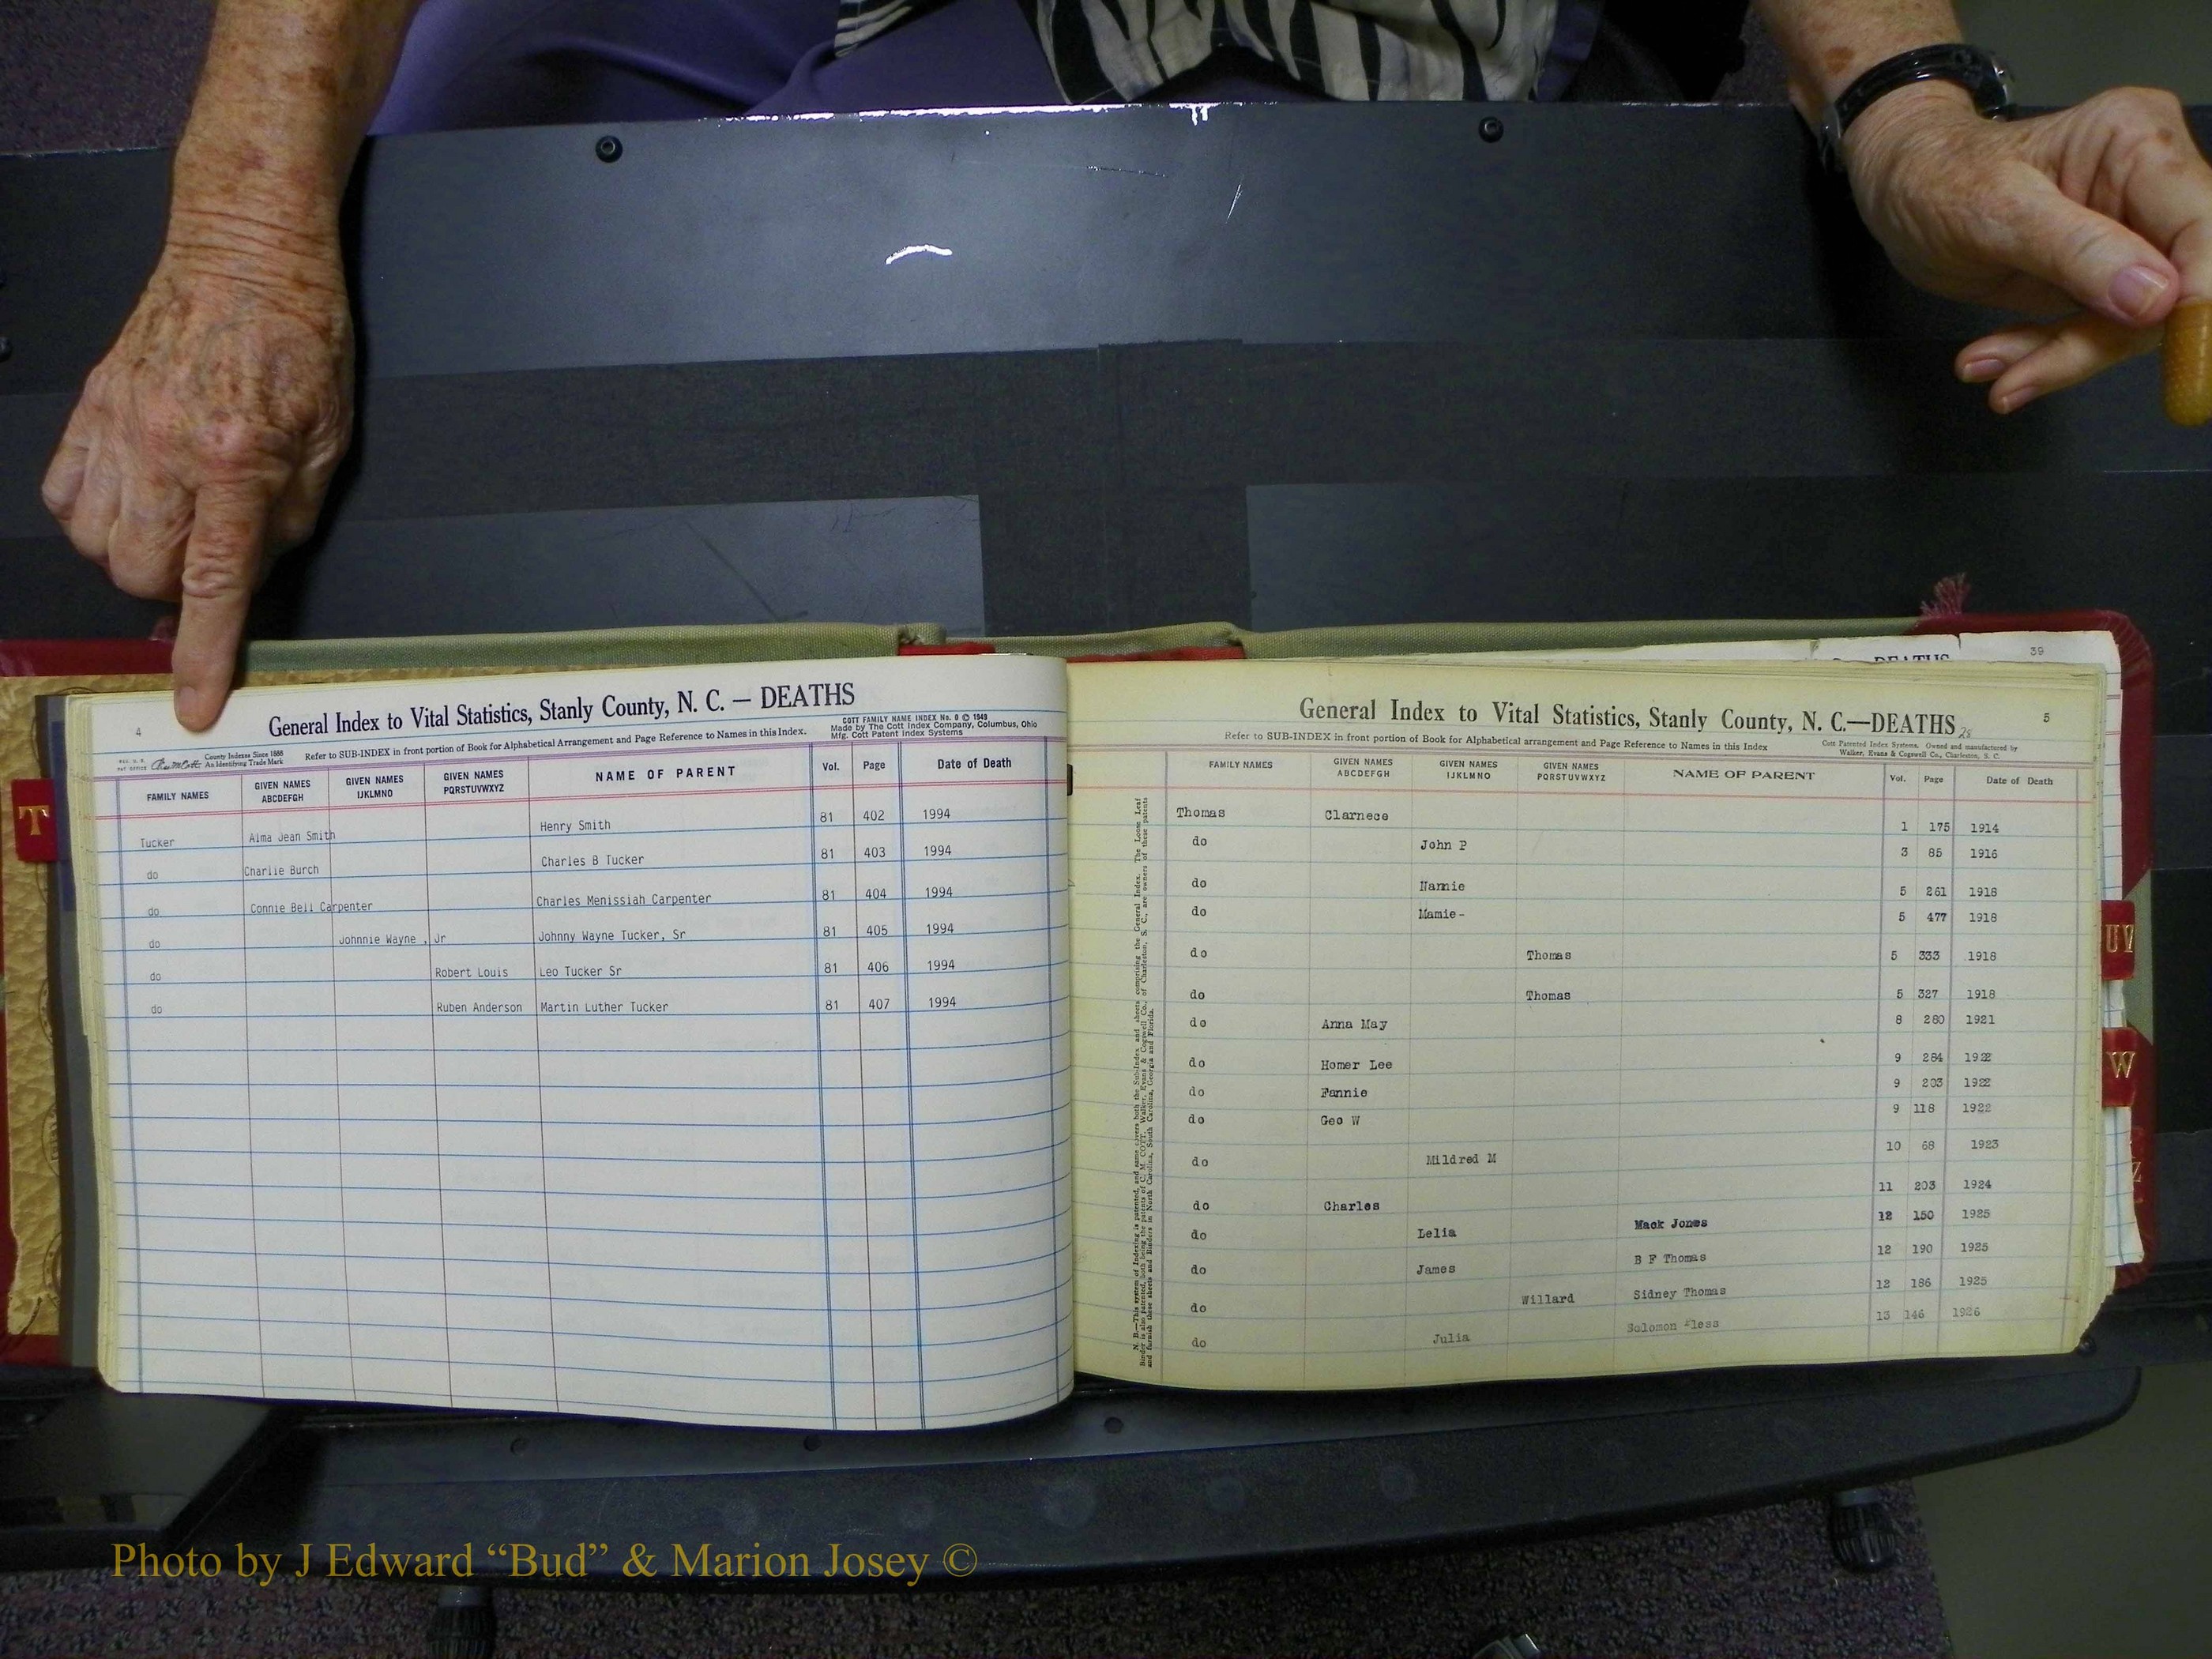 4
General Index to Vital Statistics, Stanly County, N. C. — DEATHS
COTT FAMILY NAME INDEX No. 0 © 1949
Made by The Cott Index Company, Columbus, Ohio
Mfg. Cott Patent Index Systems
County Indexes Since 1888
An Identifying Trade Mark
Refer to SUB-INDEX in front portion of Book for Alphabetical Arrangement and Page Reference to Names in this Index.
FAMILY NAMES GIVEN NAMES ABCDEFGH GIVEN NAMES IJKLMNO GIVEN NAMES PQRSTUVWXYZ NAME OF PARENT Vol. Page Date of Death
Tucker Alma Jean Smith Henry Smith 81 402 1994
do Charlie Burch Charles B Tucker 81 403 1994
do Connie Bell Carpenter Charles Menissiah Carpenter 81 404 1994
do Johnnie Wayne , Jr Johnny Wayne Tucker, Sr 81 405 1994
do Robert Louis Leo Tucker Sr 81 406 1994
do Ruben Anderson Martin Luther Tucker 81 407 1994
T
39
General Index to Vital Statistics, Stanly County, N. C.—DEATHS
5
Refer to SUB-INDEX in front portion of Book for Alphabetical arrangement and Page Reference to Names in this Index
Cott Patented Index Systems. Owned and manufactured by
Walker, Evans & Cogswell Co., Charleston, S. C.
FAMILY NAMES GIVEN NAMES ABCDEFGH GIVEN NAMES IJKLMNO GIVEN NAMES PQRSTUVWXYZ NAME OF PARENT Vol. Page Date of Death
Thomas Clarnece 1 175 1914
do John P 3 85 1916
do Namie 5 261 1918
do Mamie- 5 477 1918
do Thomas 5 333 1918
do Thomas 5 327 1918
do Anna May 8 280 1921
do Homer Lee 9 284 1922
do Fannie 9 203 1922
do Geo W 9 118 1922
do Mildred M 10 68 1923
do Charles 11 203 1924
do Lelia Mack Jones 12 150 1925
do James B F Thomas 12 190 1925
do Willard Sidney Thomas 12 186 1925
do Julia Solomon 13 146 1926
UV
W
Z
Photo by J Edward “Bud” & Marion Josey ©